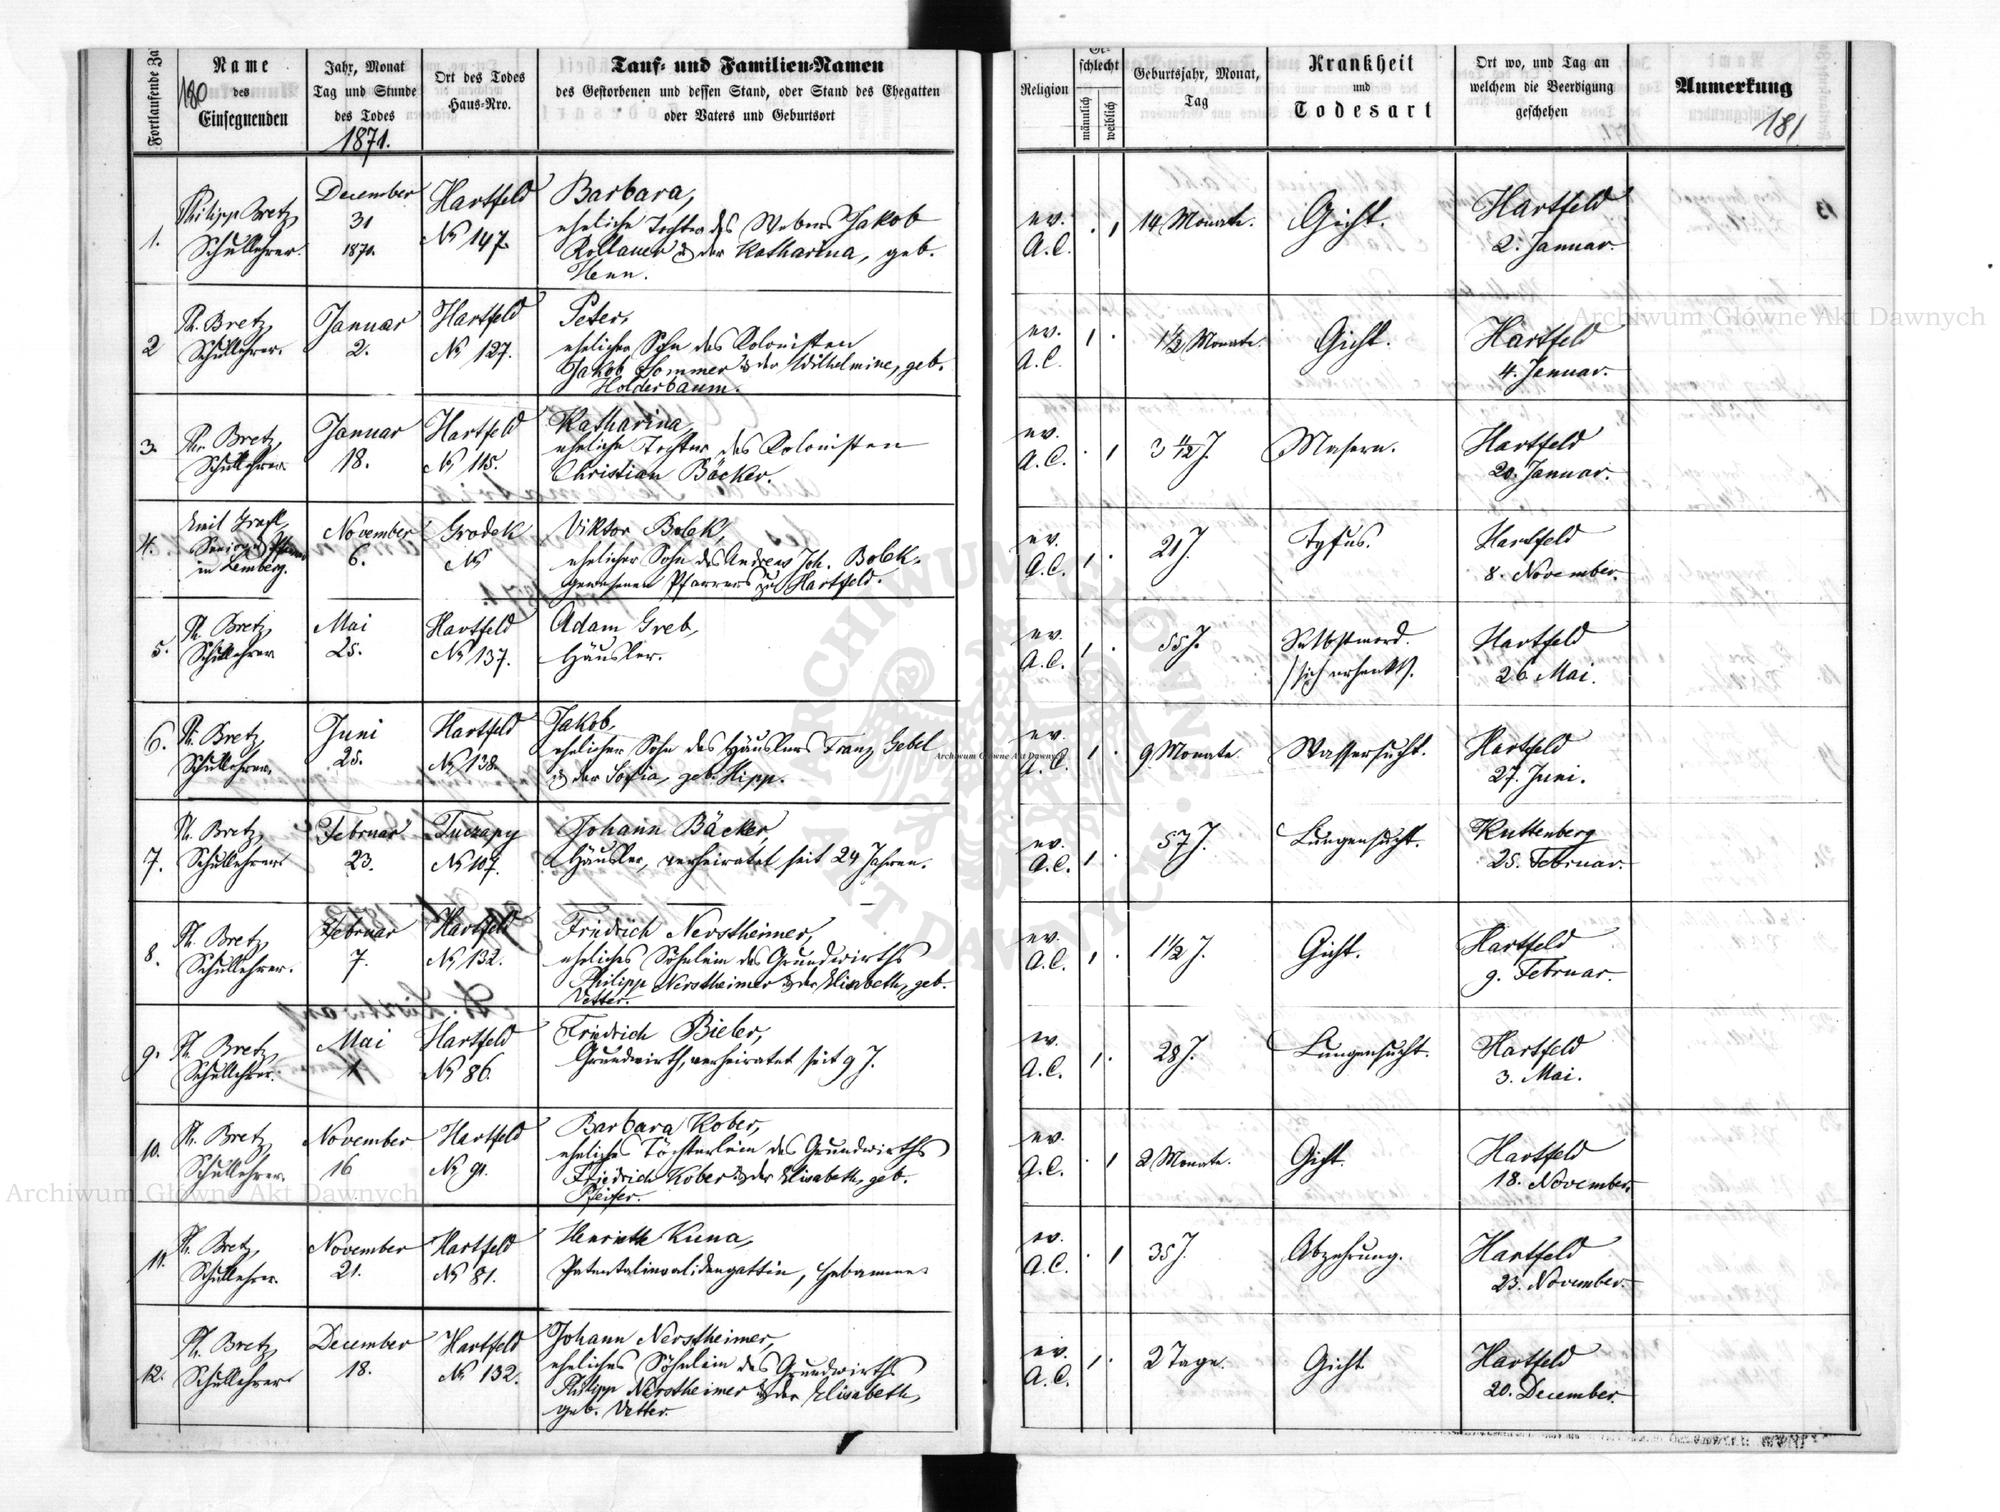 Fortlaufende Za
Name
des
Einsegnenden
180
Jahr, Monat
Tag und Stunde
des Todes
1871.
Ort des Todes
Haus-Nro.
Tauf- und Familien-Namen
des Gestorbenen und dessen Stand, oder Stand des Ehegatten
oder Vaters und Geburtsort
Religion
Ge-
schlecht
männlich
weiblich
Geburtsjahr, Monat,
Tag
Krankheit
und
Todesart
Ort wo, und Tag an
welchem die Beerdigung
geschehen
Anmerkung
181
1.
Philipp Bretz,
Schullehrer.
December
31
1870.
Hartfeld
No 147.
Barbara,
eheliche Tochter des Webers Jakob
Rollauer u der Katharina, geb.
Henn.
ev.
A.C.
. 1
14 Monate.
Gicht.
Hartfeld
2. Januar.
2
Ph. Bretz,
Schullehrer.
Januar
2.
Hartfeld
No 127.
Peter,
ehelicher Sohn des Kolonisten
Jakob Sommer u der Wilhelmine, geb.
Holderbaum.
ev.
A.C.
1 .
1½ Monate.
Gicht.
Hartfeld
4. Januar.
3.
Ph. Bretz,
Schullehrer
Januar
18.
Hartfeld
No 115.
Katharina,
eheliche Tochter des Kolonisten
Christian Bäcker.
ev.
A.C.
. 1
3 11/12 J.
Masern.
Hartfeld
20. Januar.
4.
Emil
Senior
in Lemberg.
November
6.
Grodek
No
Viktor Bolek,
ehelicher Sohn des Andreas Joh. Bolek,
gewesenen Pfarrers zu Hartfeld.
ev.
A.C.
1 .
21 J.
Tyfus.
Hartfeld
8. November.
5.
Ph. Bretz,
Schullehrer
Mai
25.
Hartfeld
No 137.
Adam Greb,
Häusler.
ev.
A.C.
1 .
55 J.
Selbstmord.
/sich erhenkt/.
Hartfeld
26 Mai.
6.
Ph. Bretz,
Schullehrer.
Juni
25.
Hartfeld
No 138.
Jakob,
ehelicher Sohn des Häuslers Franz Gebel
u der Sofia, geb. Hipp.
ev.
A.C.
1 .
9 Monate.
Wassersucht.
Hartfeld
27. Juni.
7.
Ph. Bretz,
Schullehrer
Februar
23.
Tuczapy
No 107.
Johann Bäcker,
Häusler, verheiratet seit 24 Jahren.
ev.
A.C.
1 .
57 J.
Lungensucht.
Kuttenberg
25. Februar.
8.
Ph. Bretz,
Schullehrer.
Februar
7.
Hartfeld
No 132.
Friedrich Nerstheimer,
eheliches Söhnlein des Grundwirths
Philipp Nerstheimer u der Elisabeth, geb.
Vetter.
ev.
A.C.
1 .
1½ J.
Gicht.
Hartfeld
9. Februar.
9.
Ph. Bretz,
Schullehrer.
Mai
1
Hartfeld
No 86.
Friedrich Bieler,
Grundwirth, verheiratet seit 9 J.
ev.
A.C.
1 .
28 J.
Lungensucht.
Hartfeld
3. Mai.
10.
Ph. Bretz,
Schullehrer.
November
16
Hartfeld
No 91.
Barbara Kober,
eheliches Töchterlein des Grundwirths
Friedrich Kober u der Elisabeth, geb.
Pfeifer.
ev.
A.C.
. 1
2 Monate.
Gicht.
Hartfeld
18. November.
11.
Ph. Bretz,
Schullehrer.
November
21.
Hartfeld
No 81.
Henriette Kuna,
Patentalinvalidengattin, Hebamme.
ev.
A.C.
. 1
35 J.
Abzehrung.
Hartfeld
23. November.
12.
Ph. Bretz,
Schullehrer
December
18.
Hartfeld
No 132.
Johann Nerstheimer,
eheliches Söhnlein des Grundwirths
Philipp Nerstheimer u der Elisabeth,
geb. Vetter.
ev.
A.C.
1 .
2 Tage.
Gicht
Hartfeld
20. December.
Archiwum Główne Akt Dawnych
Archiwum Główne Akt Dawnych
Archiwum Główne Akt Dawnych
ARCHIWUM GŁÓWNE AKT DAWNYCH